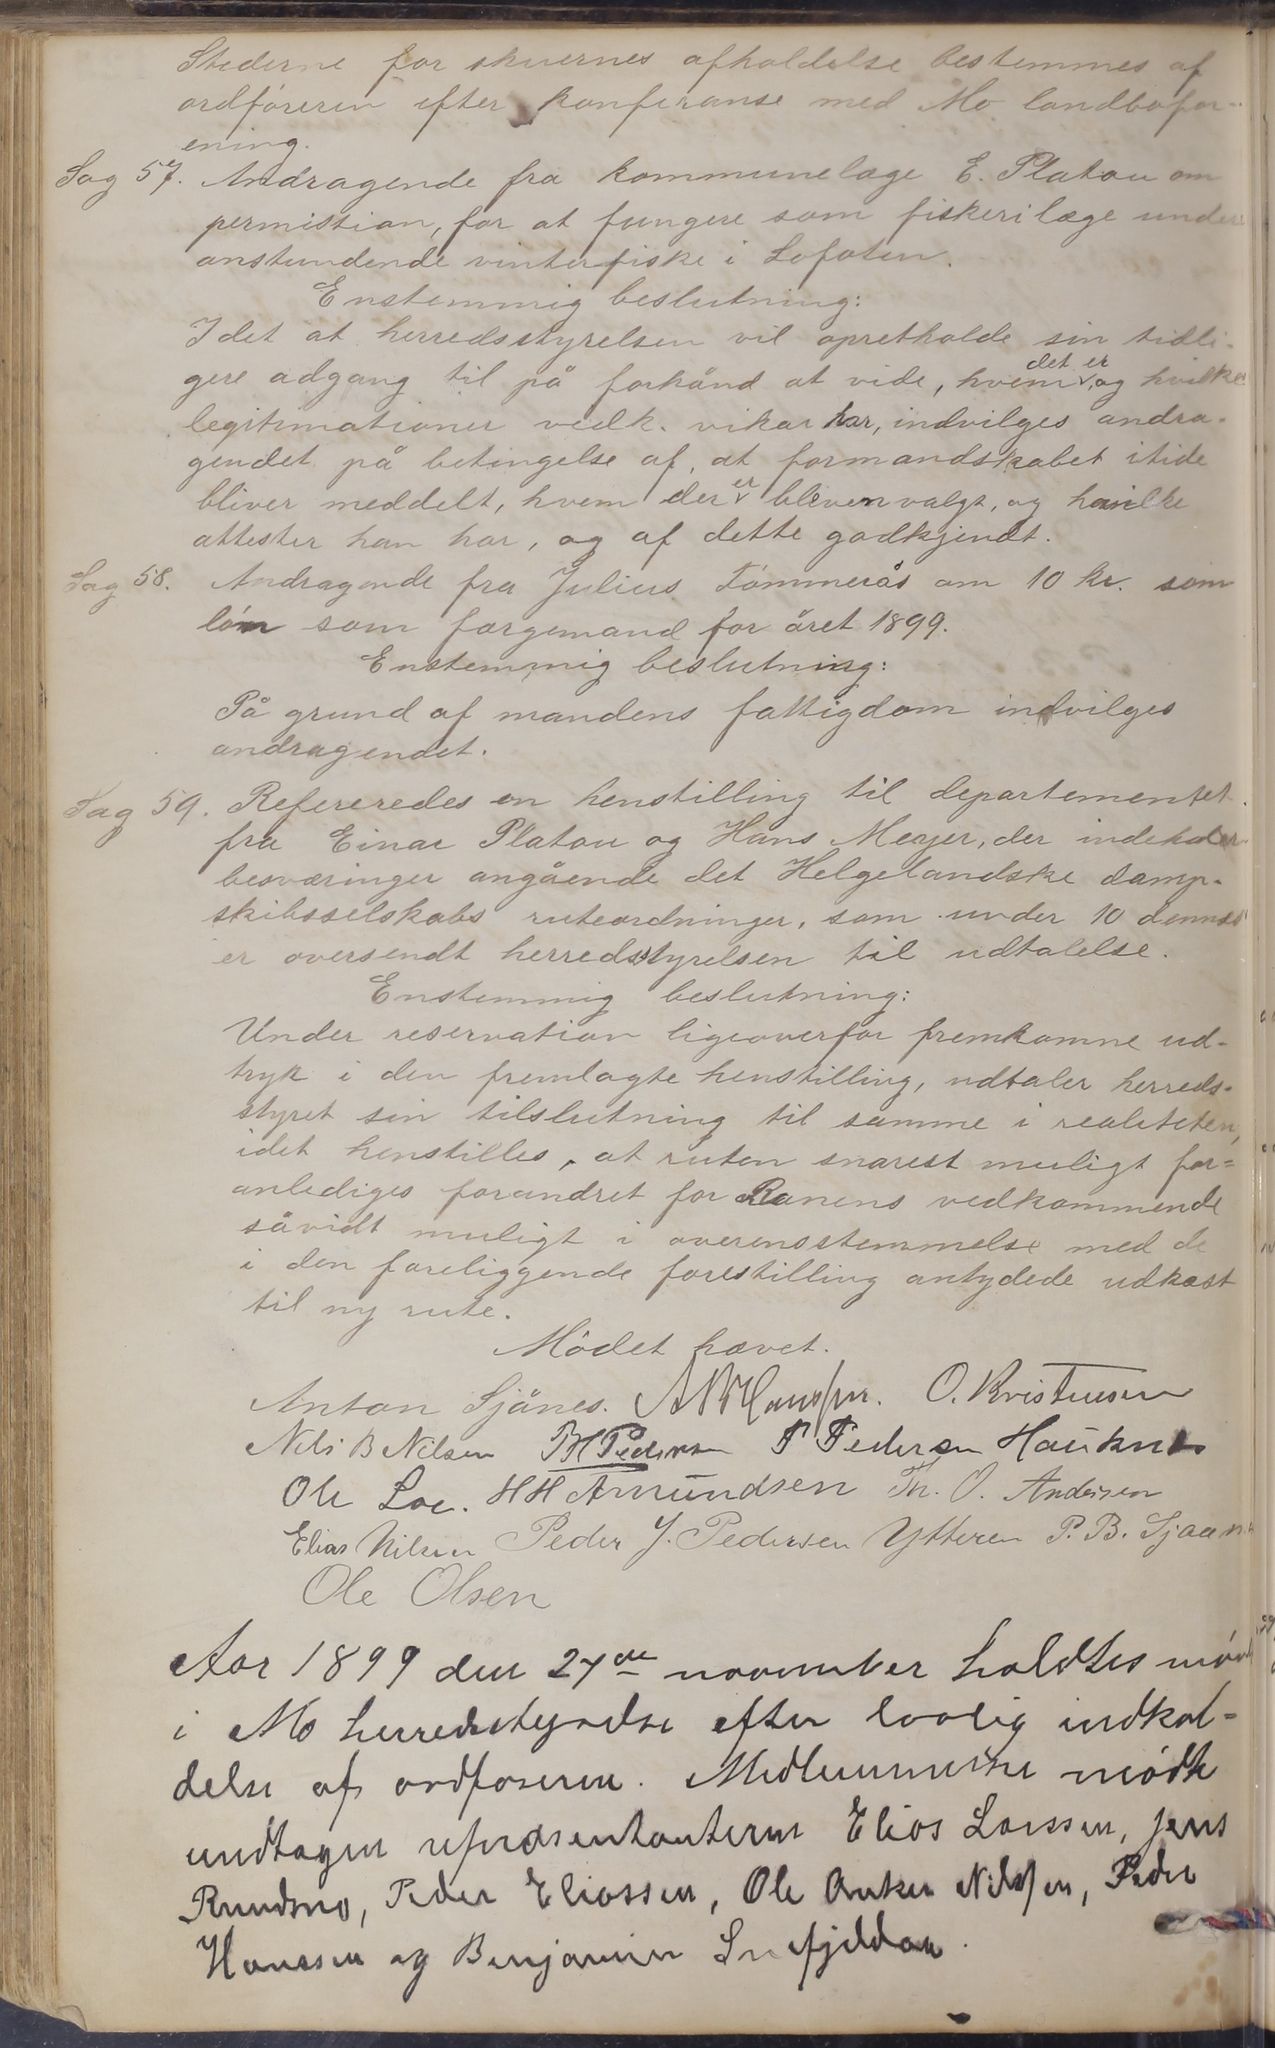 Stederne for skuernes afholdelse bestemmes af
ordföreren efter konferanse med Mo landbofor-
ening.
Sag 57. Andragende fra kommunelæge E. Platou om
permistion, for at fungere som fiskerilæge under
anstundende vinterfiske i Lofoten.
Enstemmig beslutning:
Idet at herredsstyrelsen vil opretholde sin tidli-
gere adgang til på forhånd at vide, hvem det er og hvilke
legitimationer vedk. vikar har, indvilges andra-
gendet på betingelse af, at formandskabet itide
bliver meddelt, hvem der er bleven valgt, og hvilke
attester han har, og af dette godkjendt.
Sag 58. Andragende fra Julius Tömmerås om 10 kr. som
lön som forgemand for året 1899.
Enstemmig beslutning:
På grund af mandens fattigdom indvilges
andragendet.
Sag 59. Refereredes en henstilling til departementet
fra Einar Platou og Hans Meyer, der indeholder
besværinger angående det Helgelandske damp-
skibsselskabs ruteordninger, som under 10 dennes
er oversendt herredsstyrelsen til udtalelse.
Enstemmig beslutning:
Under reservation ligeoverfor fremkomne ud-
tryk i den fremlagte henstilling, udtaler herreds-
styret sin tilslutning til samme i realiteten,
idet henstilles, at ruten snarest muligt for-
anlediges forandret for Ranens vedkommende
såvidt muligt i overensstemmelse med de
i den foreliggende forestilling antydede udkast
til ny rute.
Mödet hævet.
Anton Sjånes. A N Hanssen. O. Kristensen
Nils B Nilsen P H Pedersen P Pedersen Hauknes
Ole Loe. H H Amundsen Th. O. Andersen
Elias Nilsen Peder J. Pedersen Ytteren P. B. Sjaanes
Ole Olsen
Aar 1899 den 27de november holdtes möde
i Mo herredsstyrelse efter lovlig indkal-
delse af ordföreren. Medlemmerne mödte
undtagen repræsentanterne Elias Larssen, Jens
Rundmo, Peder Eliassen, Ole Anker Nilssen, Peder
Hanssen og Benjamin Snefjeldaa.